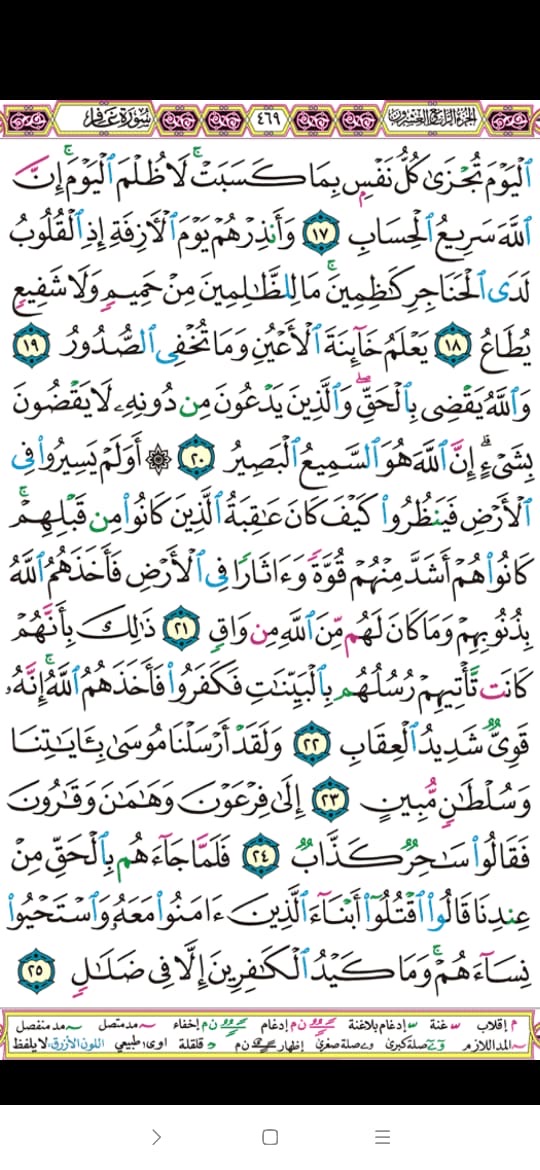 الجزء الرابع والعشرون ٤٦٩ سورة غافر
ٱلۡيَوۡمَ تُجۡزَىٰ كُلُّ نَفۡسِۭ بِمَا كَسَبَتۡۚ لَا ظُلۡمَ ٱلۡيَوۡمَۚ إِنَّ
ٱللَّهَ سَرِيعُ ٱلۡحِسَابِ ١٧ وَأَنذِرۡهُمۡ يَوۡمَ ٱلۡأٓزِفَةِ إِذِ ٱلۡقُلُوبُ
لَدَى ٱلۡحَنَاجِرِ كَٰظِمِينَۚ مَا لِلظَّٰلِمِينَ مِنۡ حَمِيمٖ وَلَا شَفِيعٖ
يُطَاعُ ١٨ يَعۡلَمُ خَآئِنَةَ ٱلۡأَعۡيُنِ وَمَا تُخۡفِي ٱلصُّدُورُ ١٩
وَٱللَّهُ يَقۡضِي بِٱلۡحَقِّۖ وَٱلَّذِينَ يَدۡعُونَ مِن دُونِهِۦ لَا يَقۡضُونَ
بِشَيۡءٍۗ إِنَّ ٱللَّهَ هُوَ ٱلسَّمِيعُ ٱلۡبَصِيرُ ٢٠ ۞ أَوَلَمۡ يَسِيرُواْ فِي
ٱلۡأَرۡضِ فَيَنظُرُواْ كَيۡفَ كَانَ عَٰقِبَةُ ٱلَّذِينَ كَانُواْ مِن قَبۡلِهِمۡۚ
كَانُواْ هُمۡ أَشَدَّ مِنۡهُمۡ قُوَّةٗ وَءَاثَارٗا فِي ٱلۡأَرۡضِ فَأَخَذَهُمُ ٱللَّهُ
بِذُنُوبِهِمۡ وَمَا كَانَ لَهُم مِّنَ ٱللَّهِ مِن وَاقٖ ٢١ ذَٰلِكَ بِأَنَّهُمۡ
كَانَت تَّأۡتِيهِمۡ رُسُلُهُم بِٱلۡبَيِّنَٰتِ فَكَفَرُواْ فَأَخَذَهُمُ ٱللَّهُۚ إِنَّهُۥ
قَوِيّٞ شَدِيدُ ٱلۡعِقَابِ ٢٢ وَلَقَدۡ أَرۡسَلۡنَا مُوسَىٰ بِـَٔايَٰتِنَا
وَسُلۡطَٰنٖ مُّبِينٍ ٢٣ إِلَىٰ فِرۡعَوۡنَ وَهَٰمَٰنَ وَقَٰرُونَ
فَقَالُواْ سَٰحِرٞ كَذَّابٞ ٢٤ فَلَمَّا جَآءَهُم بِٱلۡحَقِّ مِنۡ
عِندِنَا قَالُواْ ٱقۡتُلُوٓاْ أَبۡنَآءَ ٱلَّذِينَ ءَامَنُواْ مَعَهُۥ وَٱسۡتَحۡيُواْ
نِسَآءَهُمۡۚ وَمَا كَيۡدُ ٱلۡكَٰفِرِينَ إِلَّا فِي ضَلَٰلٖ ٢٥
م إقلاب غنة إدغام بلاغنة ن م إدغام ن م إخفاء مد متصل مد منفصل
المد اللازم صلة كبرى صلة صغرى إظهار ن م قلقلة اوى طبيعي اللون الأزرق لا يلفظ